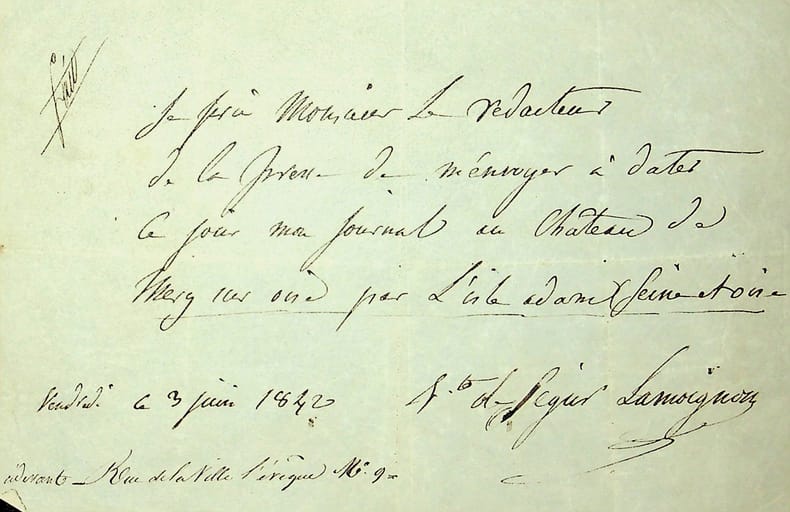 fait
Je prie Monsieur Le redacteur
de la presse de ménvoyer à dater
Ce jour mon Journal au Château de
Mery sur oise par L'isle adam (Seine et oise
V.te de Segur Lamoignon
Vendredi ce 3 juin 1842
cidevant Rue de la Ville l'évêque No. 9=